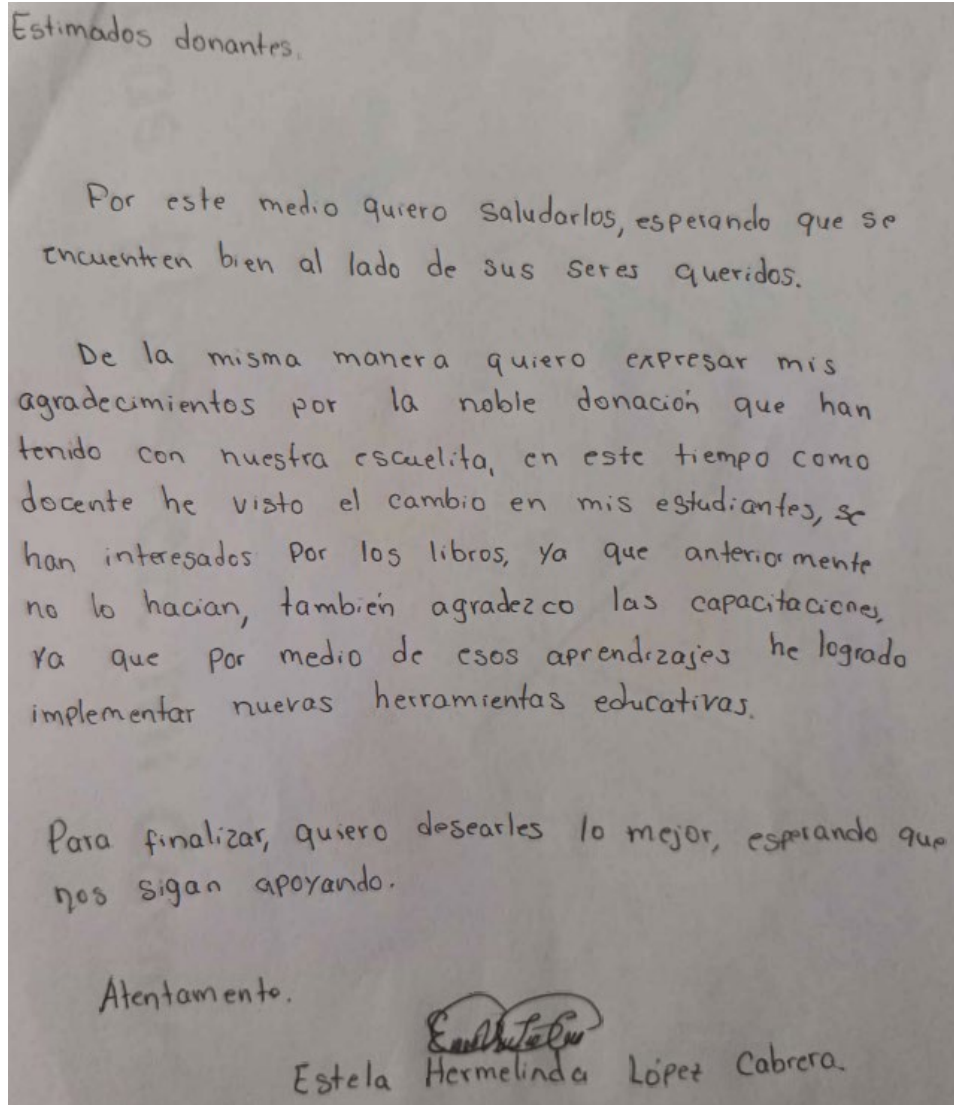 Estimados donantes.
Por este medio quiero saludarlos, esperando que se
encuentren bien al lado de sus seres queridos.
De la misma manera quiero expresar mis
agradecimientos por la noble donación que han
tenido con nuestra escuelita, en este tiempo como
docente he visto el cambio en mis estudiantes, se
han interesados por los libros, ya que anteriormente
no lo hacian, también agradezco las capacitaciones,
ya que por medio de esos aprendizajes he logrado
implementar nuevas herramientas educativas.
Para finalizar, quiero desearles lo mejor, esperando que
nos sigan apoyando.
Atentamente.
Estela Hermelinda López Cabrera.